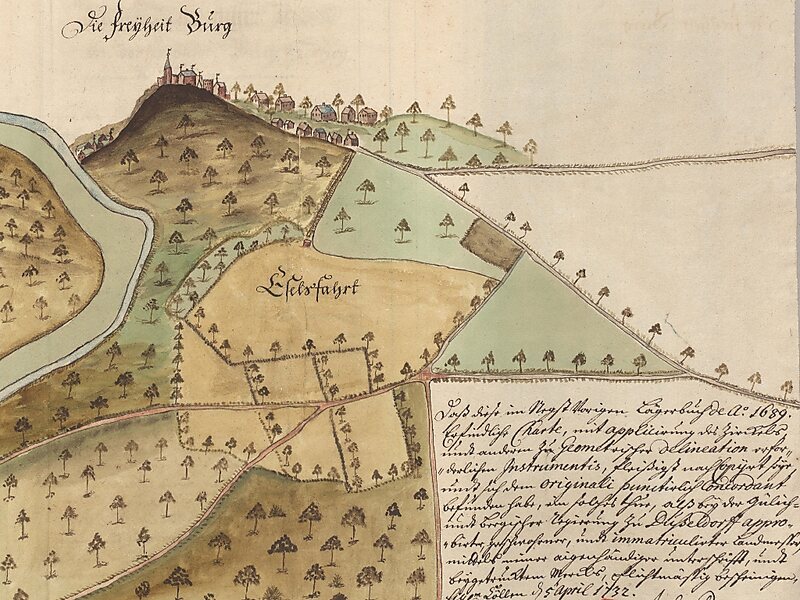 Die Freÿheit Bürg
Eselsfahrt
Daß diese im Negst Vorigen Lägerbüch de Aº 1689.
Erfindliche Charte, mit applicirüng des Zirckels
und anderen zu Geometrischer delineation erfor-
-derlichen Instrumentis, fleißigst nachcopyrt
und sich dem originali punctirlich Concordant
befünden habe, ein solches thüe, alß beÿ der Gülich-
und Bergischer Regierung zu Düßeldorff appro-
-birter geschwohrner, und immatriculirter Landmeßer
mittels meiner aigenhändiger unterschrifft, und
beygetrücktem pflichtmäßig bescheinigen,
Cöllen d. 5 April 1732.